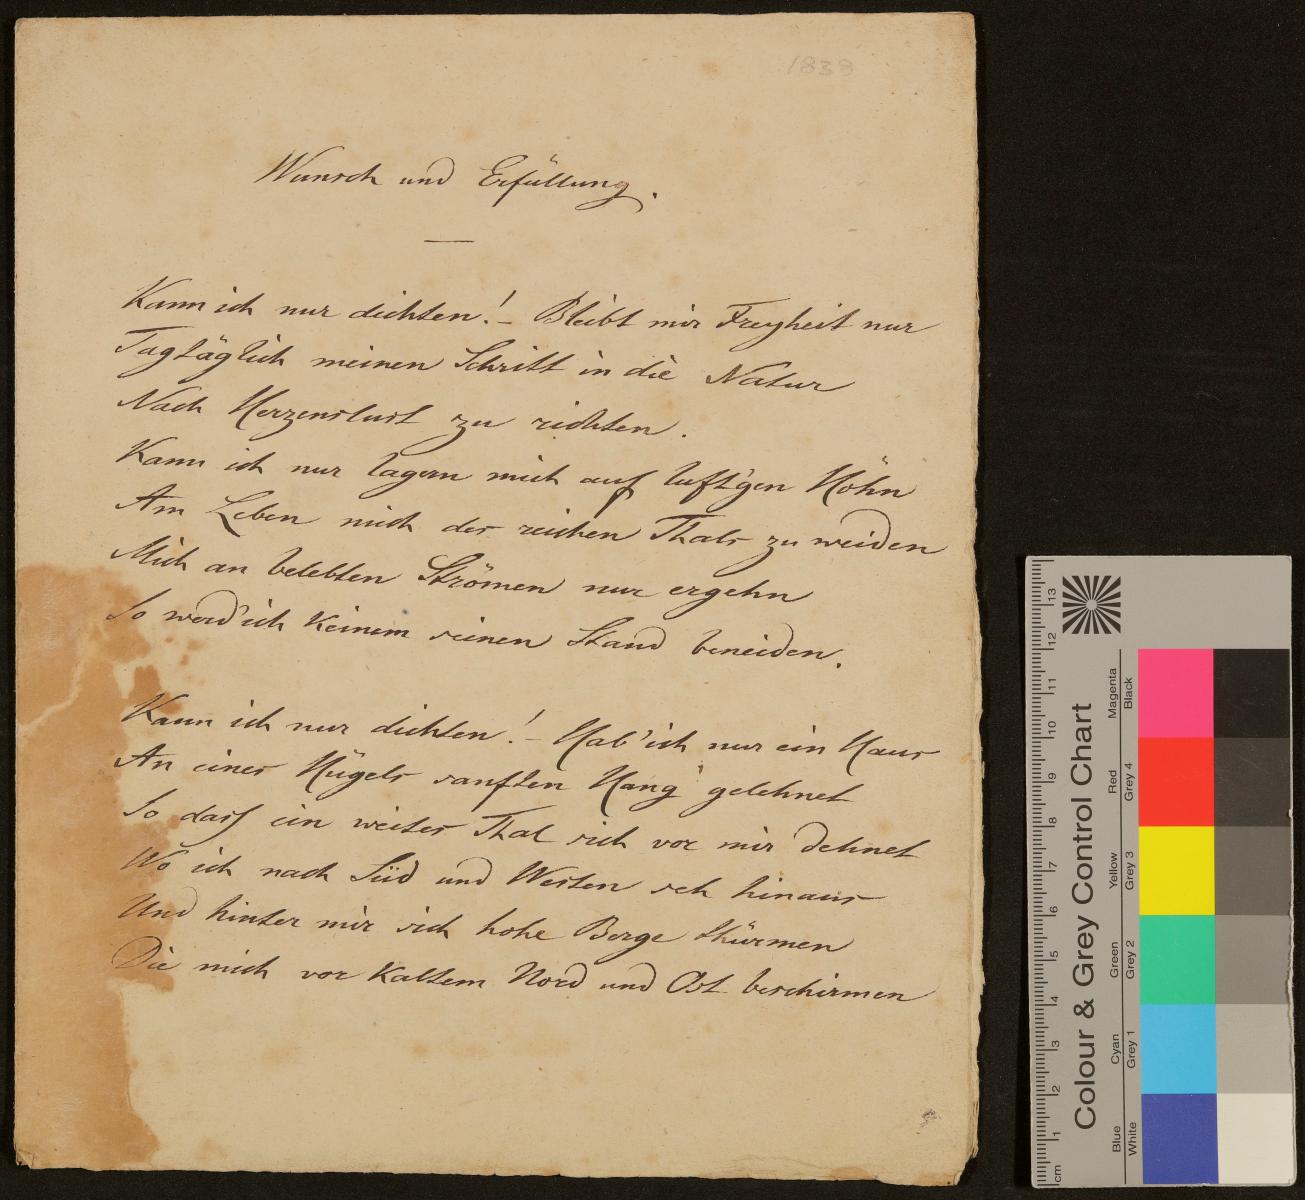 1838
Wunsch und Erfüllung.
Kann ich nur dichten! – Bleibt mir Freyheit nur
Tagtäglich meinen Schritt in die Natur
Nach Herzenslust zu richten.
Kann ich nur lagern mich auf luft'gen Höhn
Am Leben mich des reichen Thals zu weiden
Mich an belebten Strömen nur ergehn
So werd' ich Keinem seinen Stand beneiden.
Kann ich nur dichten! – Hab' ich nur ein Haus
An eines Hügels sanften Hang gelehnet
So dass ein weites Thal sich vor mir dehnet
Wo ich nach Süd und Westen seh hinaus
Und hinter mir sich hohe Berge thürmen
Die mich vor Kaltem Nord und Ost beschirmen
Colour & Grey Control Chart
Magenta
Black
Red
Grey 4
Yellow
Grey 3
Green
Grey 2
Cyan
Grey 1
Blue
White
13
12
11
10
9
8
7
6
5
4
3
2
1
cm